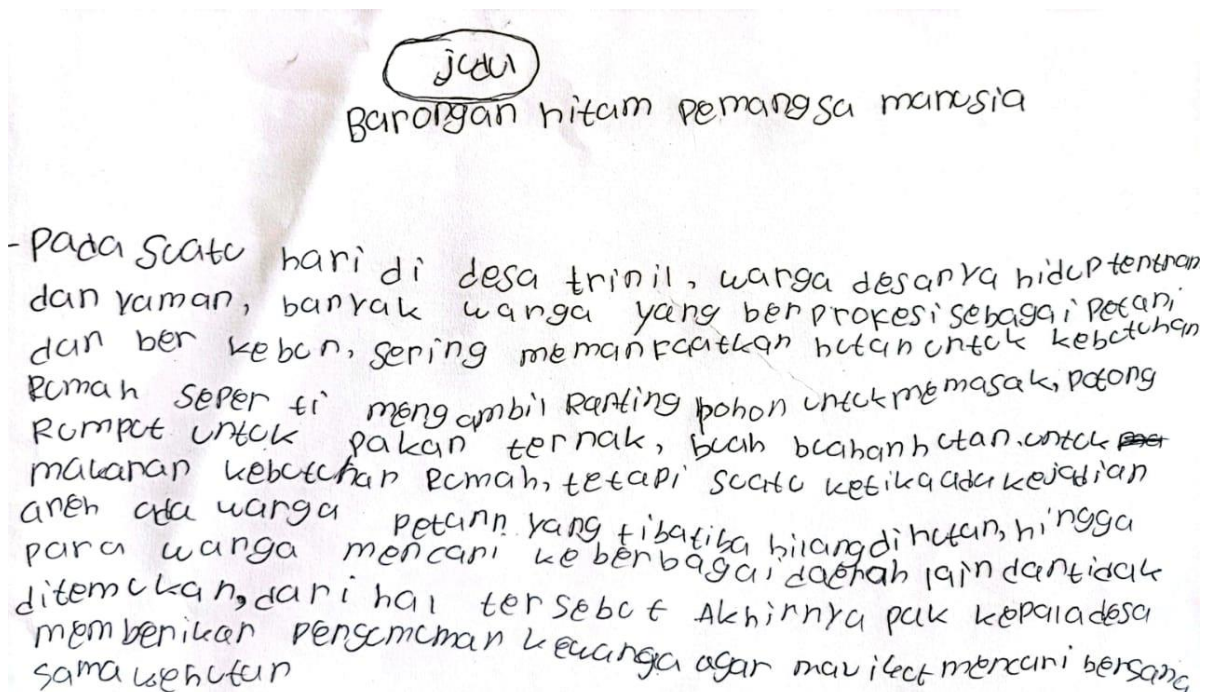 judul
Barongan hitam pemangsa manusia
- Pada suatu hari di desa trinil, warga desanya hidup tentran
dan yaman, banyak warga yang berprofesi sebagai petani
dan ber kebun, sering memanfaatkan hutan untuk kebutuhan
Rumah seper ti mengambil Ranting pohon untuk memasak, potong
Rumput untuk pakan ternak, buah buahan hutan untuk
makanan kebutuhan Rumah, tetapi suatu ketika ada kejadian
aneh ada warga petann yang tibatiba hilang dihutan, hingga
para warga mencari ke berbagai daerah lain dan tidak
ditemukan, dari hal tersebut Akhirnya pak kepala desa
memberikan pengumuman kewarga agar mau ikut mencari bersama
sama kehutan